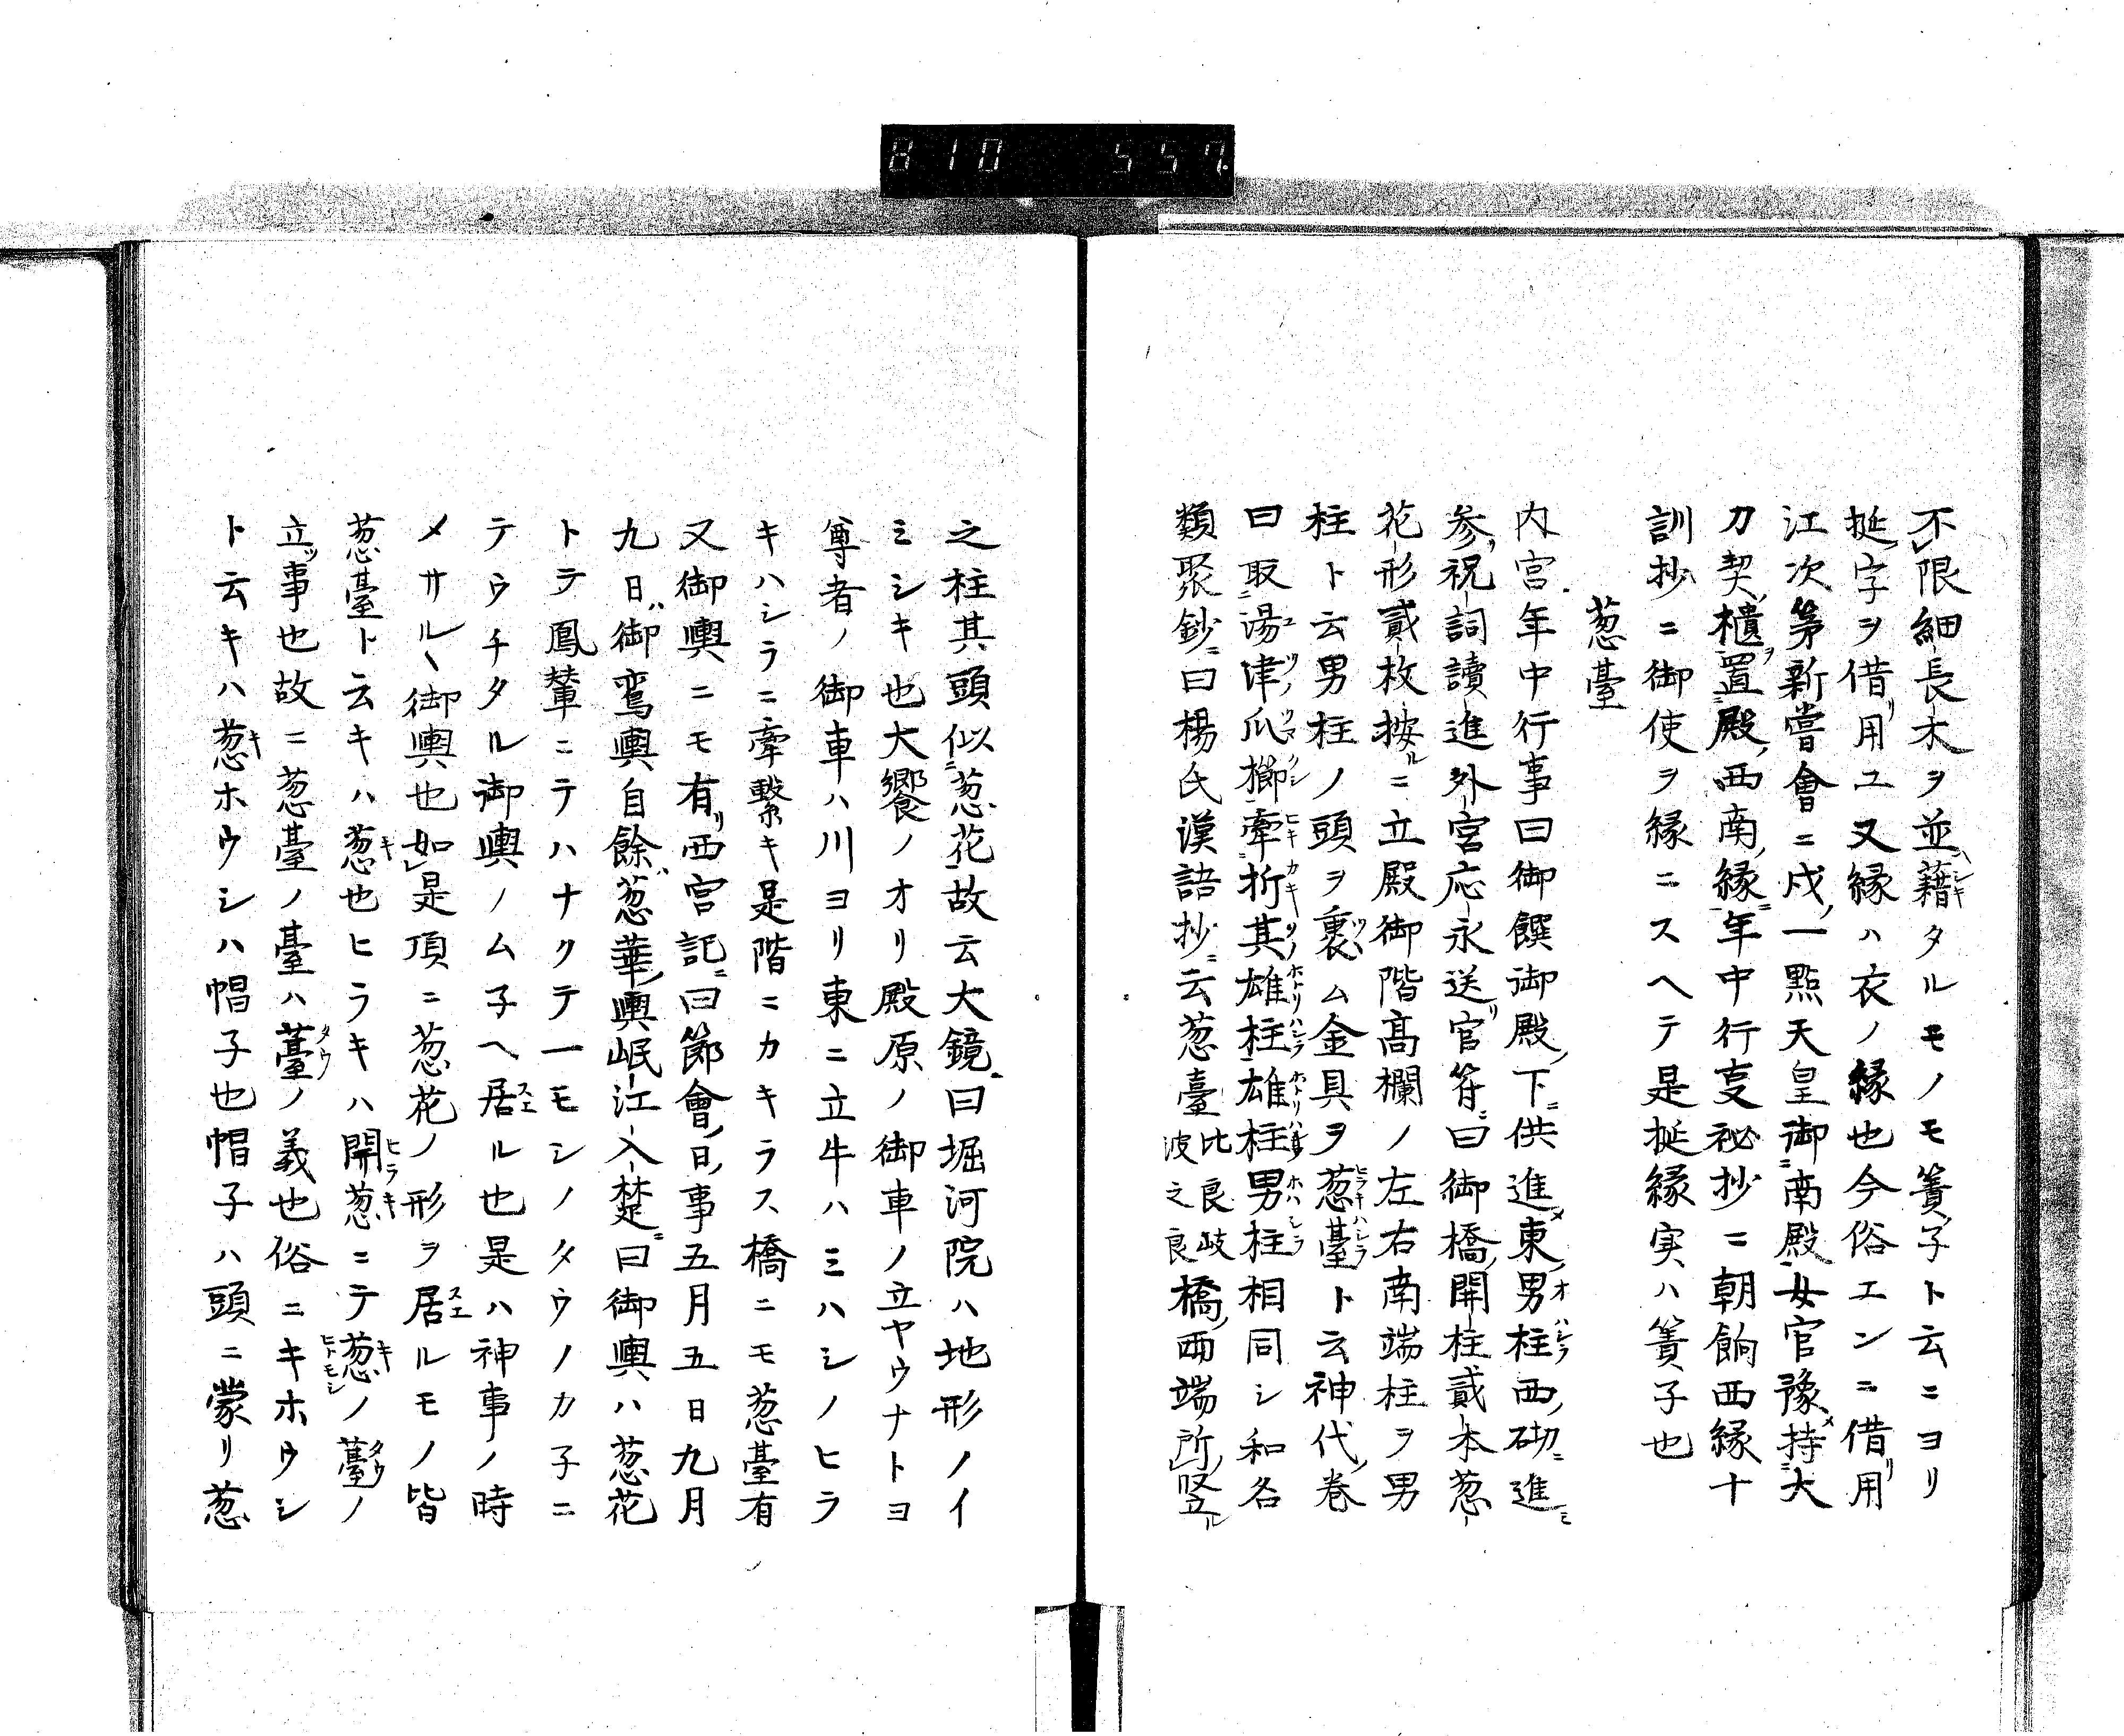 810 557
不限細長木ヲ並藉タルモノモ簀子ト云ニヨリ
挻字ヲ借用ユ又縁ハ衣ノ縁也今俗エンニ借用
江次第新嘗會ニ戌一點天皇御南殿女官豫持大
刀契櫃置殿西南縁年中行支祕抄ニ朝餉西縁十
訓抄ニ御使ヲ縁ニスヘテ是挻縁実ハ簀子也
葱臺
内宮年中行事曰御饌御殿下供進東男柱西砌進
参祝詞讀進外宮応永送官符曰御橋開柱貳本葱
花形貳枚按ニ立殿御階髙欄ノ左右南端柱ヲ男
柱ト云男柱ノ頭ヲ裹ム金具ヲ葱臺ト云神代巻
曰取湯津爪櫛牽折其雄柱雄柱男柱相同シ和名
類聚鈔曰楊氏漢語抄云葱臺比良岐波之良橋両端所竪
之柱其頭似葱花故云大鏡曰堀河院ハ地形ノイ
ミシキ也大饗ノオリ殿原ノ御車ノ立ヤウナトヨ
尊者ノ御車ハ川ヨリ東ニ立牛ハミハシノヒラ
キハシラニ牽繋キ是階ニカキラス橋ニモ葱臺有
又御輿ニモ有西宮記曰節會日事五月五日九月
九日御鸞輿自餘葱華輿岷江入楚曰御輿ハ葱花
トテ鳳輦ニテハナクテ一モシノタウノカ子ニ
テウチタル御輿ノム子ヘ居ル也是ハ神事ノ時
メサルヽ御輿也如是頂ニ葱花ノ形ヲ居ルモノ皆
葱臺ト云キハ葱也ヒラキハ開葱ニテ葱ノ薹ノ
立事也故ニ葱臺ノ臺ハ薹ノ義也俗ニキホウシ
ト云キハ葱ホウシハ帽子也帽子ハ頭ニ蒙リ葱